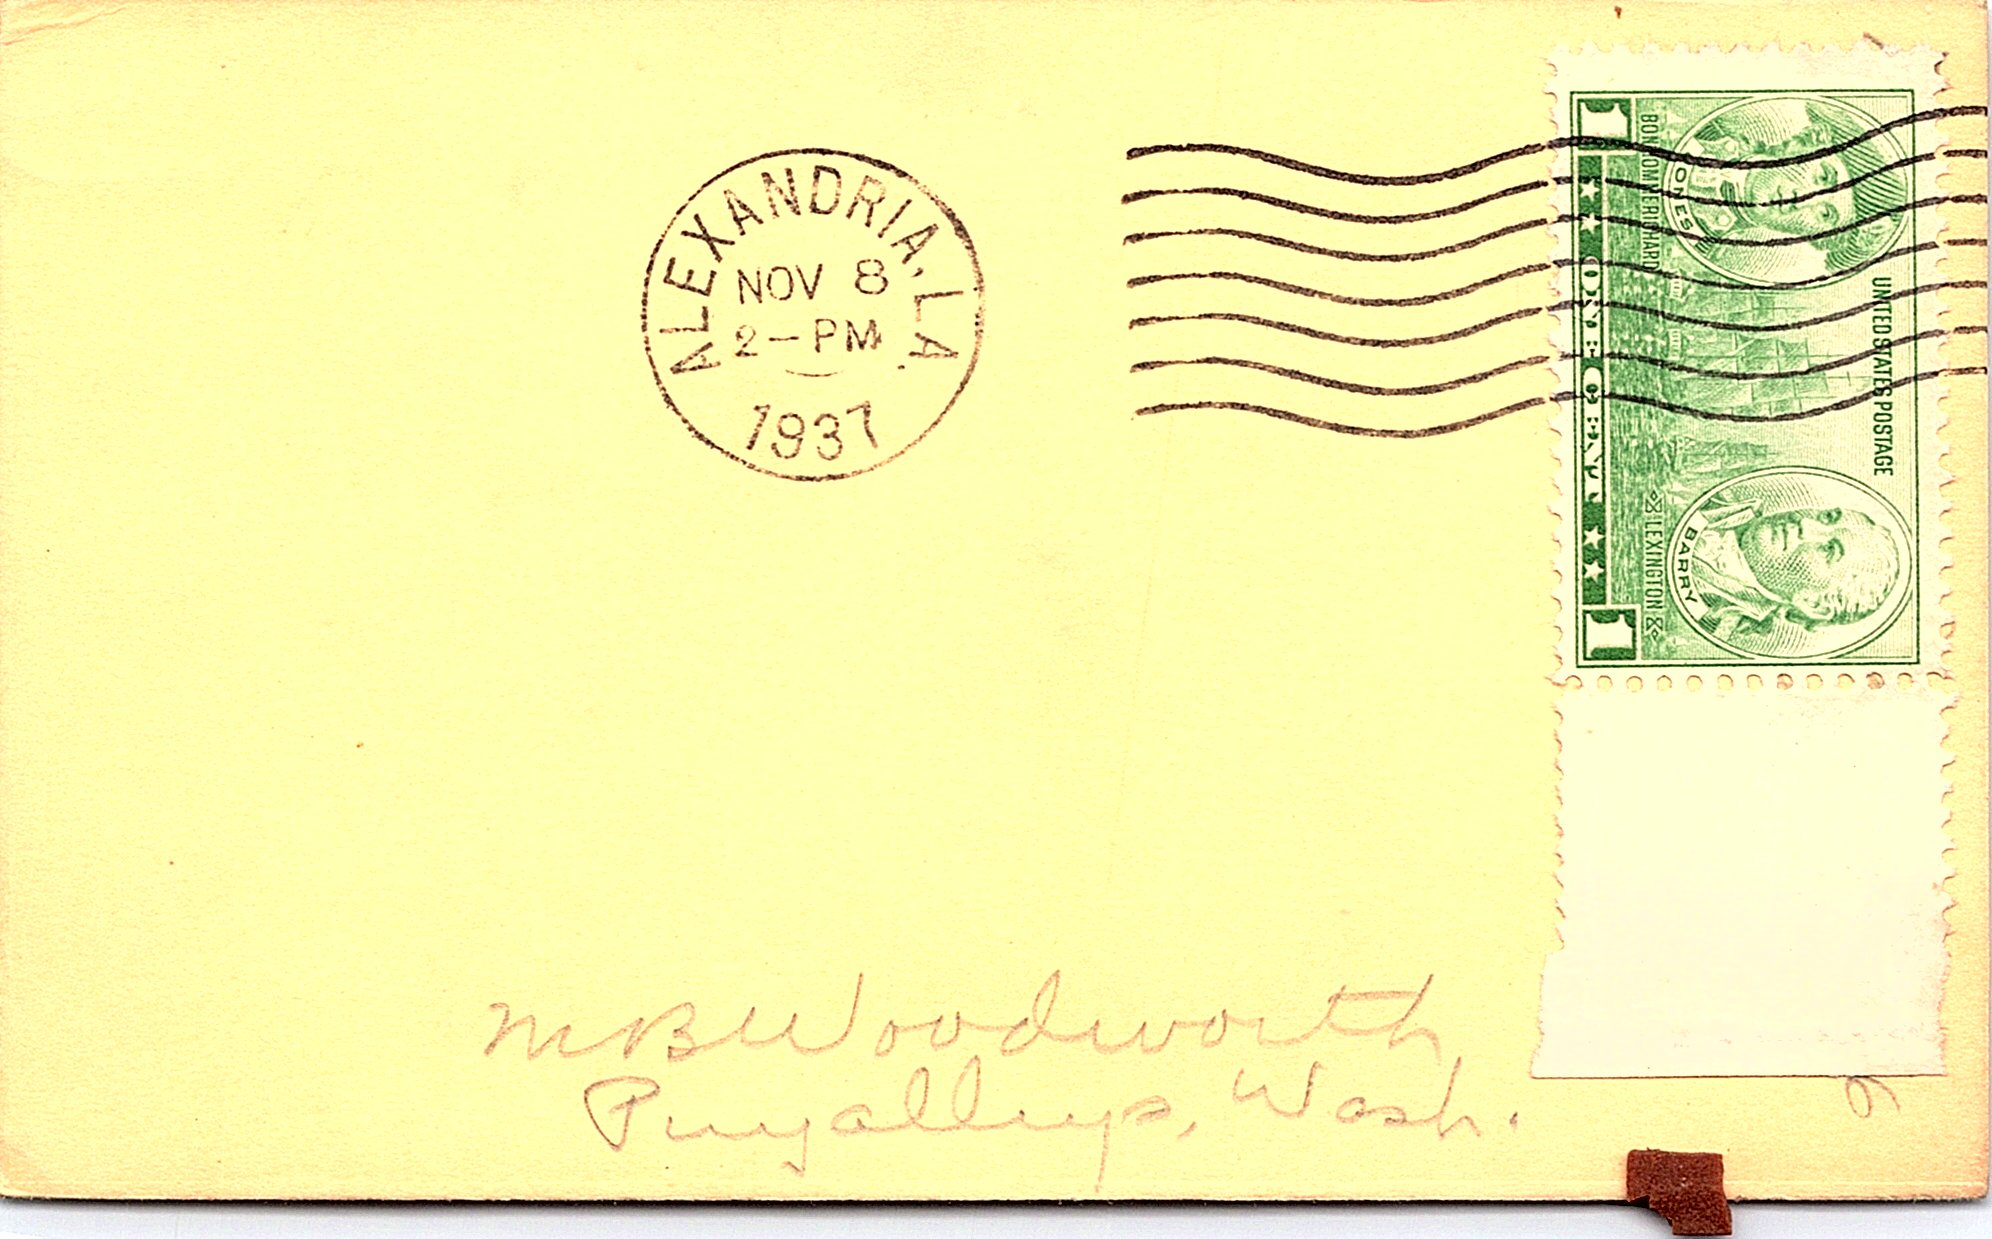 ALEXANDRIA, LA.
NOV 8
2-PM
1937
1 ONE CENT 1
BON HOMME RICHARD
LEXINGTON
JONES
BARRY
UNITED STATES POSTAGE
M B Woodworth
Puyallup, Wash.
6